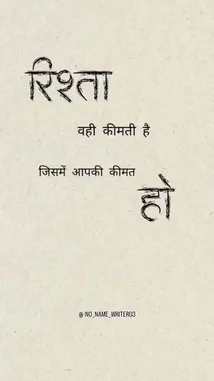 रिश्ता
वही कीमती है
जिसमें आपकी कीमत
हो
@-NO_NAME_WRITER03